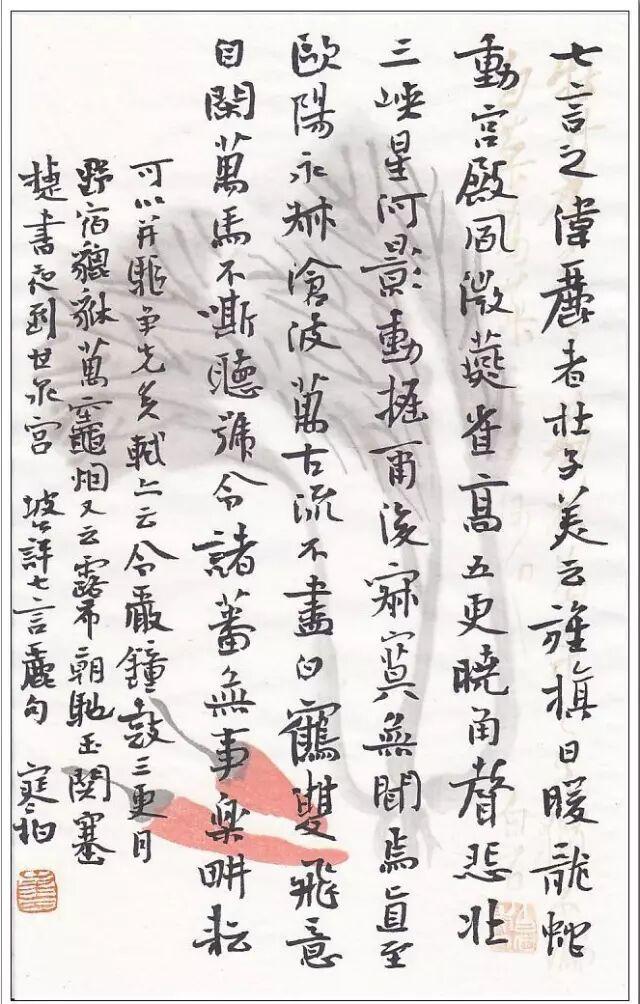 七言之偉麗者杜子美云旌旗日暖龍蛇
動宮殿風微燕雀高五更曉角聲悲壯
三峽星河影動搖爾後寂寞無聞焉直至
歐陽永叔滄波萬古流不盡白鶴雙飛意
自閑萬馬不嘶聽號令諸蕃無事樂畊耘
可以并驅爭先矣軾亦云令嚴鐘鼓三更月
野宿貔貅萬竈烟又云露布朝馳玉關塞
捷書夜到甘泉宮 坡公評七言麗句 寒柏